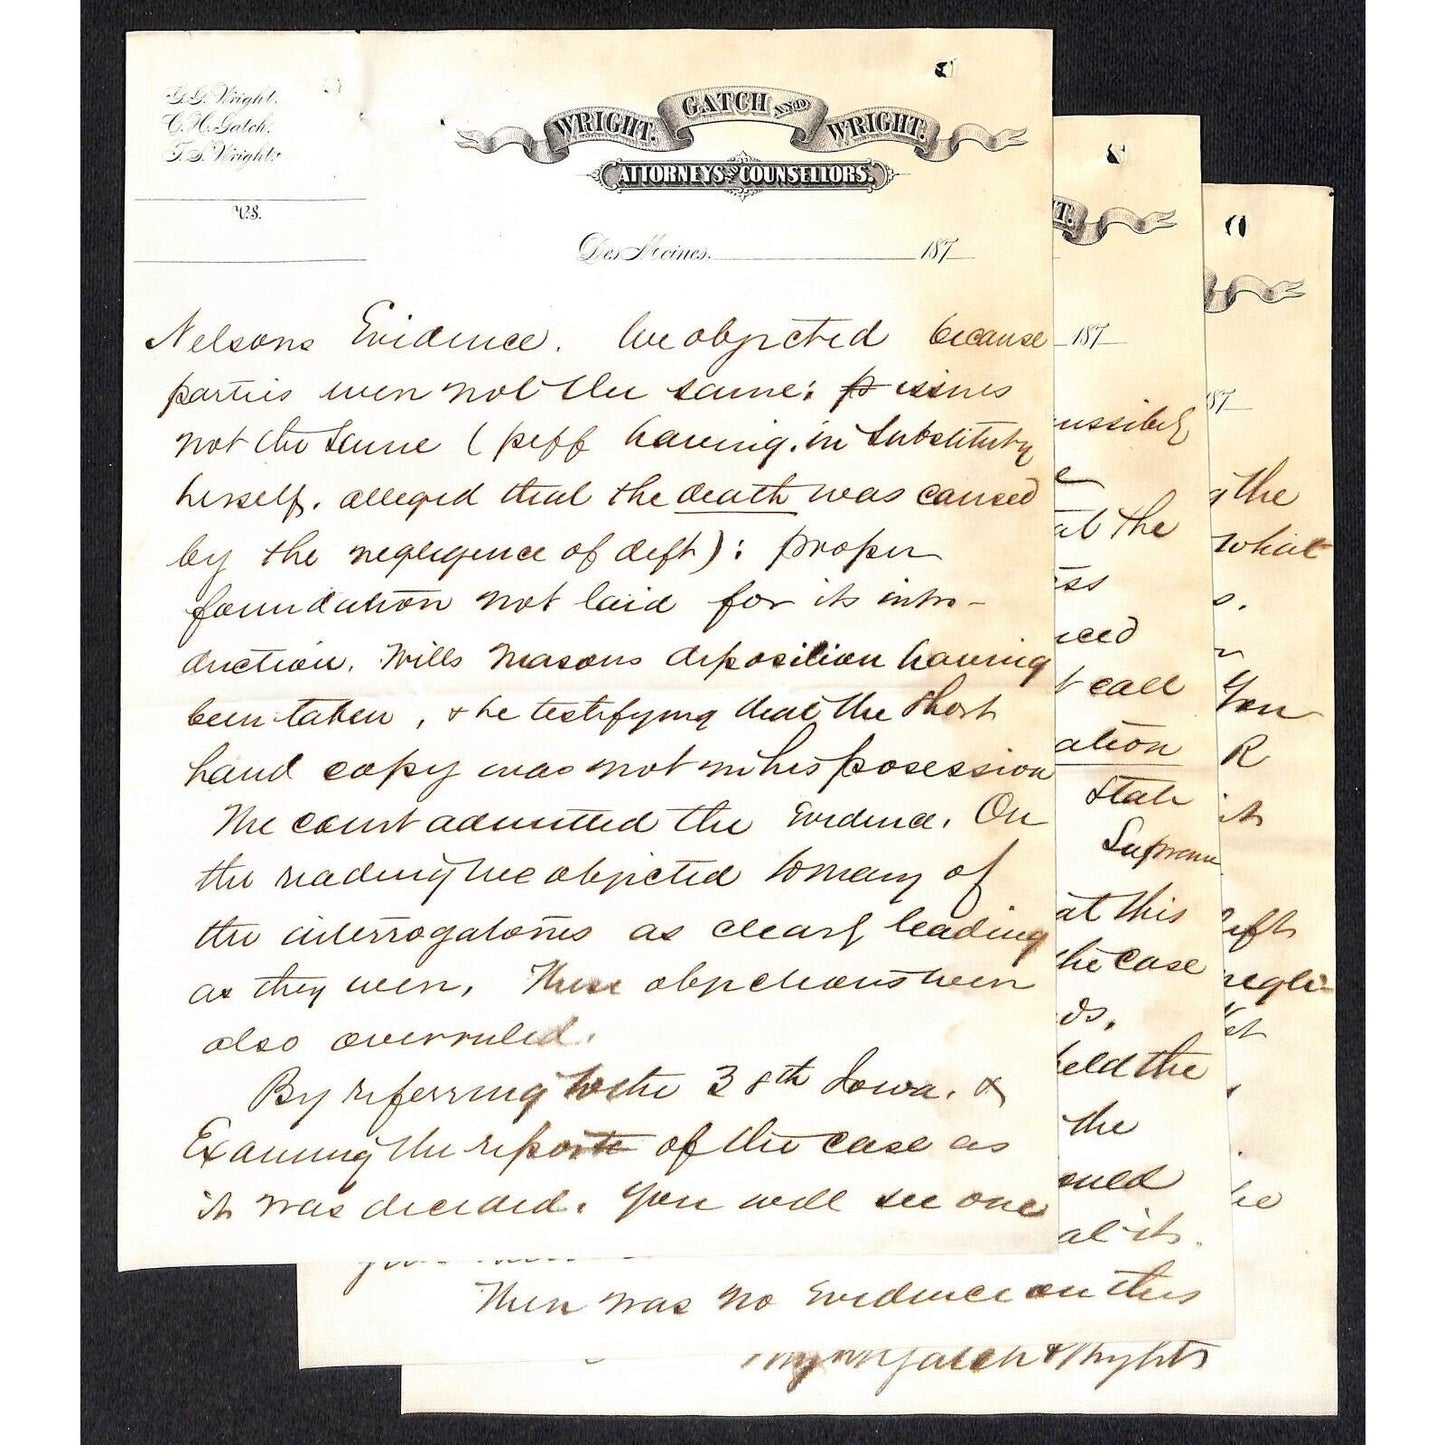 G.G. Wright.
C.H. Gatch.
T.S. Wright.
VS.
WRIGHT, GATCH AND WRIGHT.
ATTORNEYS AND COUNSELLORS.
Des Moines, 187
Nelsons Evidence. We objected because
parties were not the same: p issues
not the same ( plff having, in substituting
herself, alleged that the death was caused
by the negligence of deft): proper
foundation not laid for its intro-
duction. Mills Masons deposition having
been taken, & he testifying that the short
hand copy was not in his posession
The court admitted the Evidence. On
the reading we objected to many of
the interrogatories as clearly leading
as they were. These objections were
also overruled.
By referring to the 38th Iowa. &
Examining the report of the case as
it was decided. You will see one
T.
187
ussibly
at the
ess
uced
t call
ation
State
Supreme
at this
the case
ds.
held the
the
ould
al its.
There was no Evidence on this
187
g the
what
s.
You
R
its
deft
negli-
he
Wright Gatch & Wright